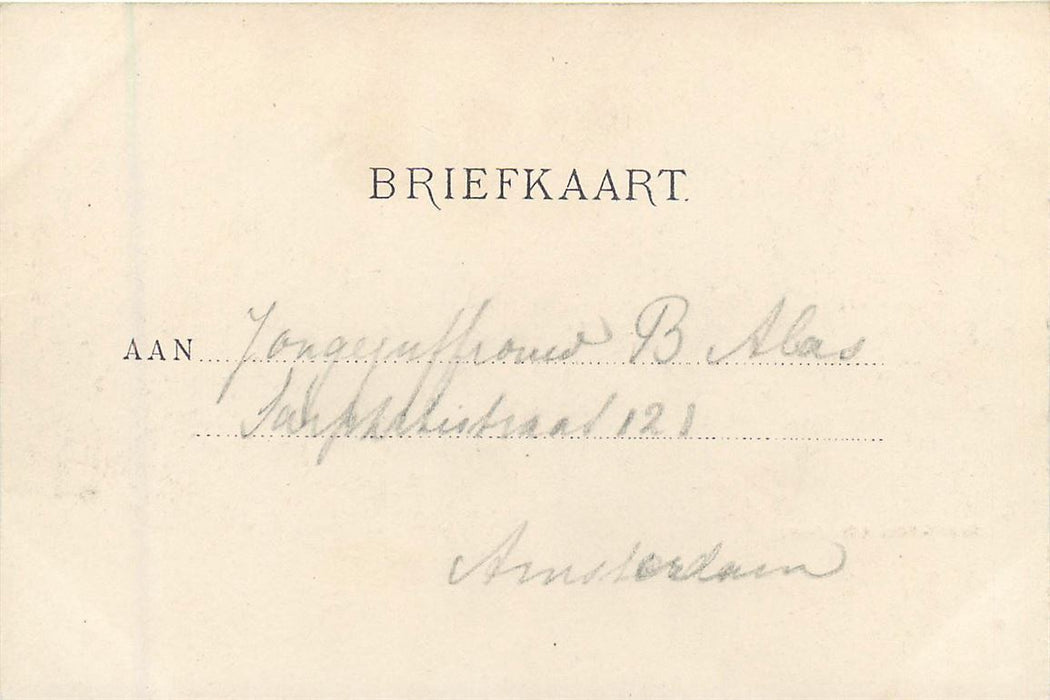 BRIEFKAART.
AAN Jongejuffrouw B Alas
Sarphatistraat 121
Amsterdam